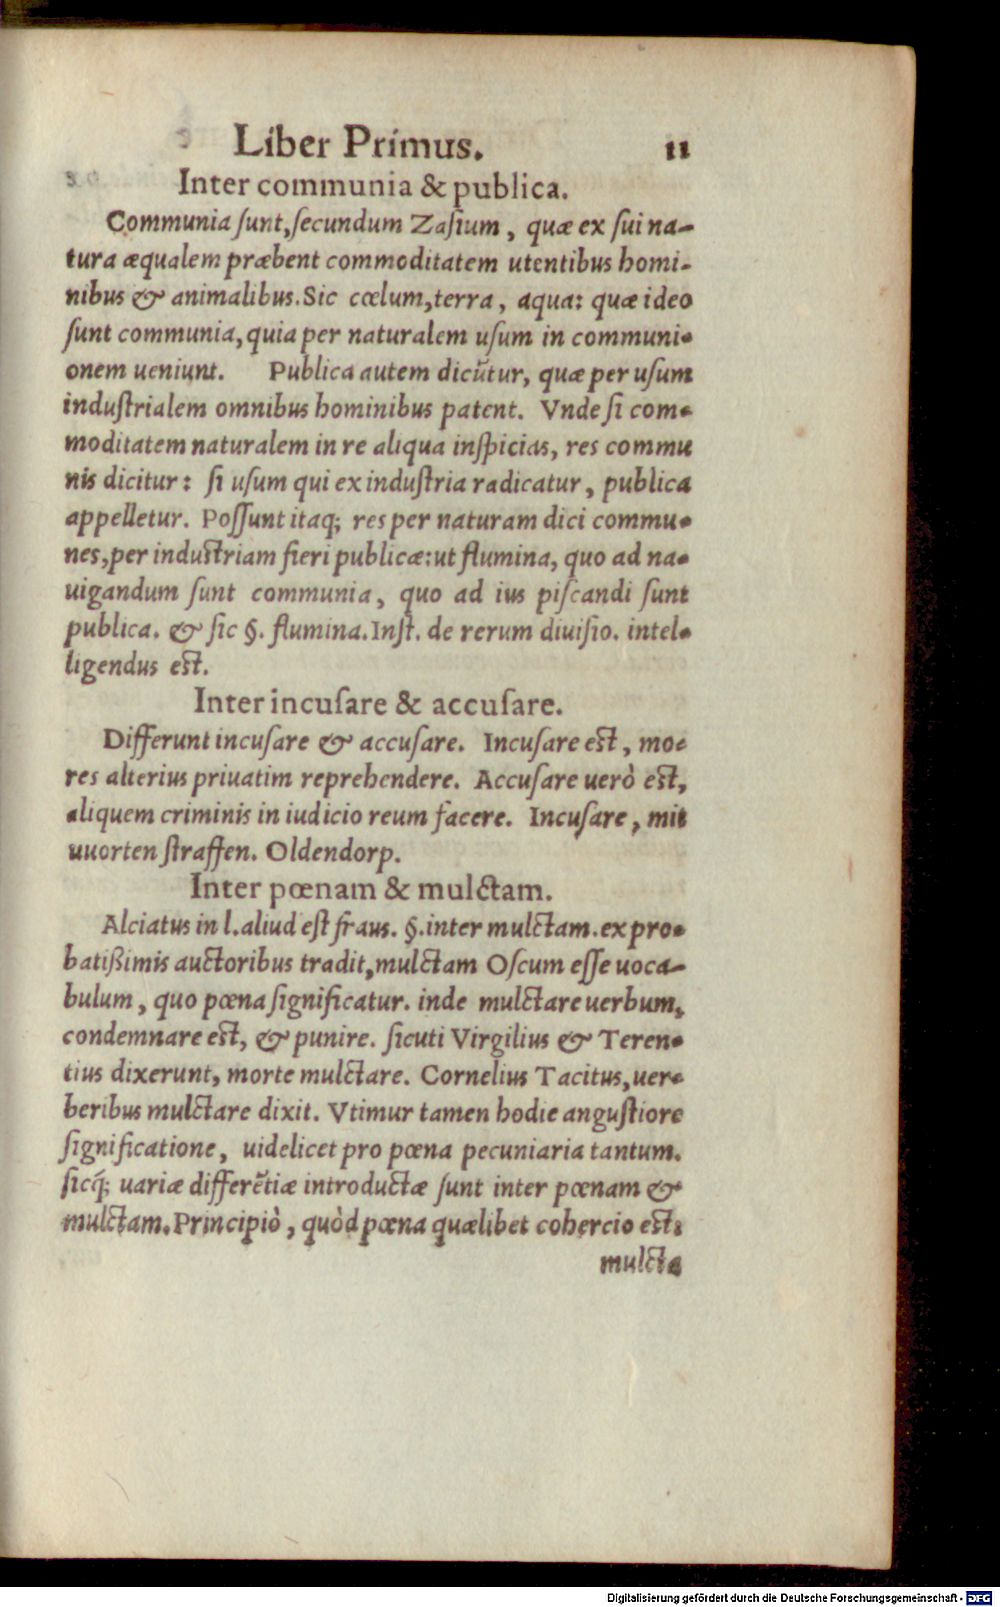 Liber Primus. 11
Inter communia & publica.
Communia ſunt, ſecundum Zaſium, quæ ex ſui na-
tura æqualem præbent commoditatem utentibus homi-
nibus & animalibus. Sic cœlum, terra, aqua: quæ ideo
ſunt communia, quia per naturalem uſum in communi-
onem ueniunt. Publica autem dicũtur, quæ per uſum
induſtrialem omnibus hominibus patent. Vnde ſi com-
moditatem naturalem in re aliqua inſpicias, res commu
nis dicitur: ſi uſum qui ex induſtria radicatur, publica
appelletur. Poſſunt itaq; res per naturam dici commu-
nes, per induſtriam fieri publicæ: ut flumina, quo ad na-
uigandum ſunt communia, quo ad ius piſcandi ſunt
publica. & ſic §. flumina. Inſt. de rerum diuiſio. intel-
ligendus eſt.
Inter incuſare & accuſare.
Differunt incuſare & accuſare. Incuſare eſt, mo-
res alterius priuatim reprehendere. Accuſare uerò eſt,
aliquem criminis in iudicio reum facere. Incuſare, mit
uuorten ſtraffen. Oldendorp.
Inter pœnam & mulctam.
Alciatus in l. aliud eſt fraus. §. inter mulctam. ex pro-
batißimis auctoribus tradit, mulctam Oſcum eſſe uoca-
bulum, quo pœna ſignificatur. inde mulctare uerbum,
condemnare eſt, & punire. ſicuti Virgilius & Teren-
tius dixerunt, morte mulctare. Cornelius Tacitus, uer-
beribus mulctare dixit. Vtimur tamen hodie anguſtiore
ſignificatione, uidelicet pro pœna pecuniaria tantum.
ſicq́; uariæ differẽtiæ introductæ ſunt inter pœnam &
mulctam. Principiò, quòd pœna quælibet cohercio eſt:
mulcta
Digitalisierung gefördert durch die Deutsche Forschungsgemeinschaft - DFG